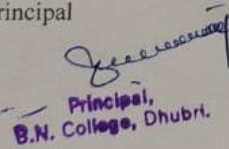 rincipal
Principal,
B.N. College, Dhubri.